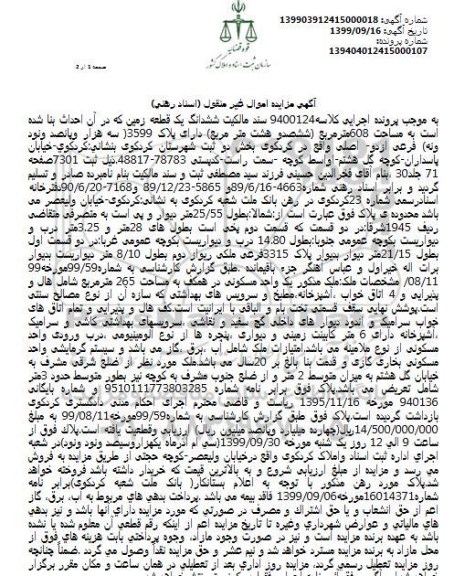 شماره آگهی: 139903912415000018
تاریخ آگهی: 1399/09/16
شماره پرونده:
139404012415000107
قوه قضائیه
سازمان ثبت اسناد و املاک کشور
صفحه 1 از 2
آگهی مزایده اموال غیر منقول (اسناد رهنی)
به موجب پرونده اجرایی کلاسه9400124 سند مالکیت ششدانگ یک قطعه زمین که در آن احداث بنا شده
است به مساحت 608مترمربع (ششصدو هشت متر مربع) دارای پلاک 3599( سه هزار وپانصد ونود
ونه) فرعی ازدو- اصلی واقع در کردکوی بخش دو ثبت شهرستان کردکوی بنشانی:کردکوی-خیابان
پاسداران-کوچه گل هشتم- واسط کوچه -سمت راست-کدپستی 78783-48817.ذیل ثبت 7301صفحه
71 جلد30 .بنام آقای فخرالدین حسینی فرزند سید مصطفی ثبت و سند مالکیت بنام نامبرده صادر و تسلیم
گردید و برابر اسناد رهنی شماره4663-89/6/16و 5865-89/12/23 و7168-90/6/20دفترخانه
اسنادرسمی شماره 23کردکوی در رهن بانک ملت شعبه کردکوی به نشانی:کردکوی-خیابان ولیعصر می
باشد محدوده ی پلاک فوق عبارت است از:شمالا:بطول 25/55متر دیوار و پی است به متصرفی متقاضی
ردیف 1945شرقا:در دو قسمت که قسمت دوم پخی است بطول های 28متر و 3.25متر درب و
دیواریست بکوچه عمومی جنوبا:بطول 14.80 درب و دیواریست بکوچه عمومی غربا:در دو قسمت اول
بطول 21/15متر دیوار بدیوار پلاک 3315فرعی ملکی ریوار دوم بطول 8/10 متر دیواریست بدیوار
برات اله خیراول و عباس آهنگر جزء باقیمانده .طبق گزارش کارشناسی به شماره59/99مورخه99
/08/11/ مشخصات ملک:ملک مذکور یک واحد مسکونی در همکف به مساحت 265 مترمربع شامل هال و
پذیرایی و 4 اتاق خواب ،آشپزخانه.مطبخ و سرویس های بهداشتی که سازه آن از نوع مصالح سنتی
است.پوشش نهایی سقف قسمتی تخت بام و الباقی با ایرانیت است.کف هال و پذیرایی و تمام اتاق های
خواب سرامیک و اندود دیوار های داخلی گچ سفید و نقاشی .سرویسهای بهداشتی کاشی و سرامیک
،آشپزخانه دارای 6 متر کابینت زمینی و دیواری ،پنجره ها از نوع آلومینیومی .درب ورودی واحد
مسکونی از نوع ملامینه می باشد.امتیازات ملک شامل آب .برق .گاز می باشد و سیستم گرمایشی واحد
مسکونی بخاری گازی و قدمت بنا بالغ بر 20سال می باشد.ملک مورد نظر از ضلع شرقی مشرف به
خیابان گل هشتم به میزان متوسط 2 متر و از ضلع جنوب مشرف به کوچه نیز بطور متوسط حدود 3متر
شامل تعریض می باشد.پلاک فوق برابر نامه شماره 9510111773803285 و شماره بایگانی
940136 مورخه 1395/11/16 ریاست و قاضی محترم اجرای احکام مدنی دادگستری کردکوی
بازداشت گردیده است.پلاک فوق طبق گزارش کارشناسی به شماره59/99مورخه 99/08/11 به مبلغ
14/500/000/000 ریال(چهارده میلیارد وپانصد میلیون ریال) ارزیابی وقطعیت یافته است.پلاک فوق از
ساعت 9 الی 12 روز یک شنبه مورخه 1399/09/30(سی ام آذرماه یکهزاروسیصد ونود ونه)در شعبه
اجرای اداره ثبت اسناد واملاک کردکوی واقع درخیابان ولیعصر-کوچه حجتی از طریق مزایده به فروش
می رسد و مزایده از مبلغ ارزیابی شروع و به بالاترین قیمت که خریدار داشته باشد فروخته خواهد
شد.پلاک مورد رهن مذکور با توجه به اعلام بستانکار( بانک ملت شعبه کردکوی)برابر نامه
شماره16014371مورخه1399/09/06 فاقد بیمه می باشد .پرداخت بدهی های مربوط به آب، برق، گاز
اعم از حق انشعاب و یا حق اشتراک و مصرف در صورتی که مورد مزایده دارای آنها باشد و نیز بدهی
های مالیاتی و عوارض شهرداری وغیره تا تاریخ مزایده اعم از اینکه رقم قطعی آن معلوم شده یا نشده
باشد به عهده برنده مزایده است و نیز در صورت وجود مازاد، وجوه پرداختی بابت هزینه های فوق از
محل مازاد به برنده مزایده مسترد خواهد شد و نیم عشر و حق مزایده نقداً وصول می گردد .ضمناً چنانچه
روز مزایده تعطیل رسمی گردد، مزایده روز اداری بعد از تعطیلی در همان ساعت و مکان مقرر برگزار